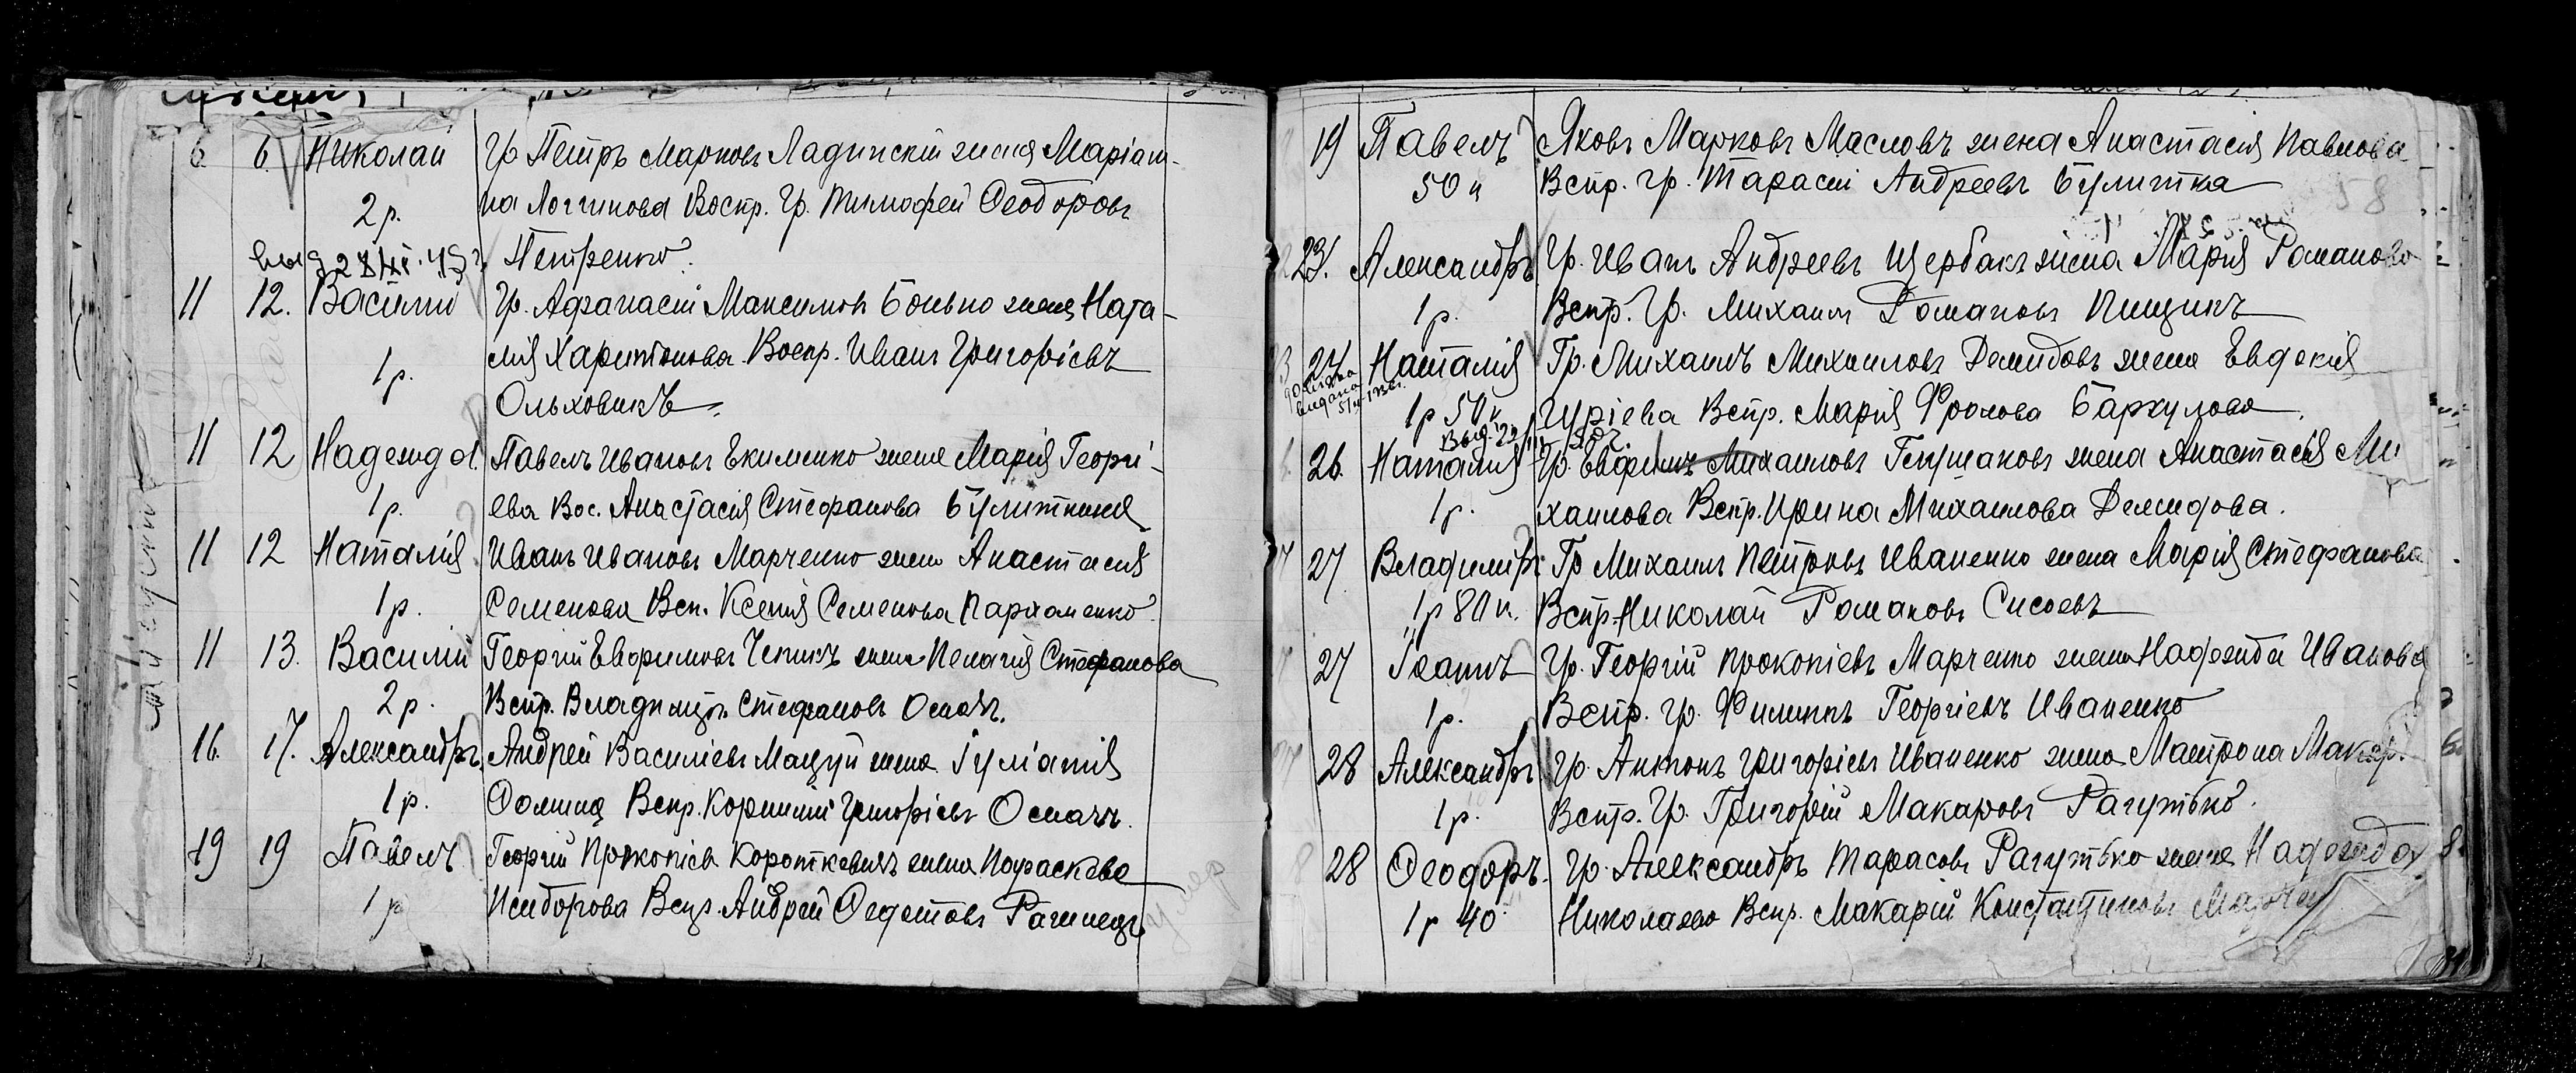 6 6 Николай Гр Петръ Марковъ Ладинскій жена Маріам-
2 р. на Логгинова Воспр. Гр. Тимофей Ѳеодоровъ
Петренко.
11 12. Василій Гр. Афанасій Максимовъ жена Ната-
1 р. лія Харитонова Воспр. Иванъ Григоріевъ
Ольховикъ
11 12 Надежда Павелъ Ивановъ Екименко жена Марія Георгі-
1 р. ева Вос. Анастасія Стефанова Булиткина
11 12 Наталія Иванъ Ивановъ Марченко жена Анастасія
1 р. Семенова Всп. Ксенія Семенова Пархоменко
11 13. Василій Георгій Евфимовъ Чепикъ жена Пелагія Стефанова
2 р. Вспр. Владиміръ Стефановъ Осмачъ.
16. 17. Александръ Андрей Василіевъ Мацуй жена Іуліанія
1 р. Фомина Вспр. Корнилій Григорієвъ Осмачъ.
19 19 Павелъ Георгій Прокопіевъ Короткевичъ жена Параскева
1 р Исидорова Вспр. Андрей Ѳедотовъ
умер
19 Павелъ Яковъ Марковъ Масловъ жена Анастасія Павлова
50 к Вспр. Гр. Тарасій Андреевъ Булитка
58
23. Александръ Гр. Иванъ Андреевъ Щербакъ жена Марія Романова
1 р. Вспр. Гр. Михаилъ Романовъ Пищикъ
24 Наталія Гр. Михаилъ Михаиловъ Демидовъ жена Евдокія
1 р 50 к Гуріева Вспр. Марія Фролова Баркулова.
26. Наталія Гр. Евфимъ Михаиловъ жена Анастасія Ми
1 р. хаилова Вспр. Ирина Михаилова Демидова.
27 Владиміръ Гр Михаилъ Петровъ Иваненко жена Марія Стефанова
1 р 80 к. Вспр Николай Романовъ Сисоевъ
27 Іоаннъ Гр. Георгій Прокопіевъ Марченко жена Надежда Иванова
1 р. Вспр. Гр. Филиппъ Георгіевъ Иваненко
28 Александръ Гр. Антонъ Григоріевъ Иваненко жена Матрона Макар.
1 р. Вспр. Гр. Григорій Макаровъ Рагутько.
28 Ѳеодоръ. Гр. Александръ Тарасовъ Рагутько жена Надежда
1 р 40 Николаева Вспр. Макарій Константиновъ